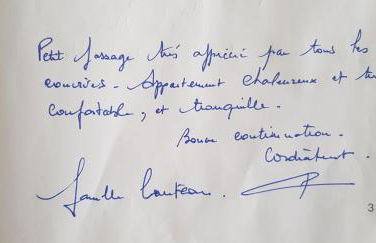 Petit passage très apprécié par tous les
convives. Appartement chaleureux et
confortable, et tranquille.
Bonne continuation.
Cordialement.
famille
3